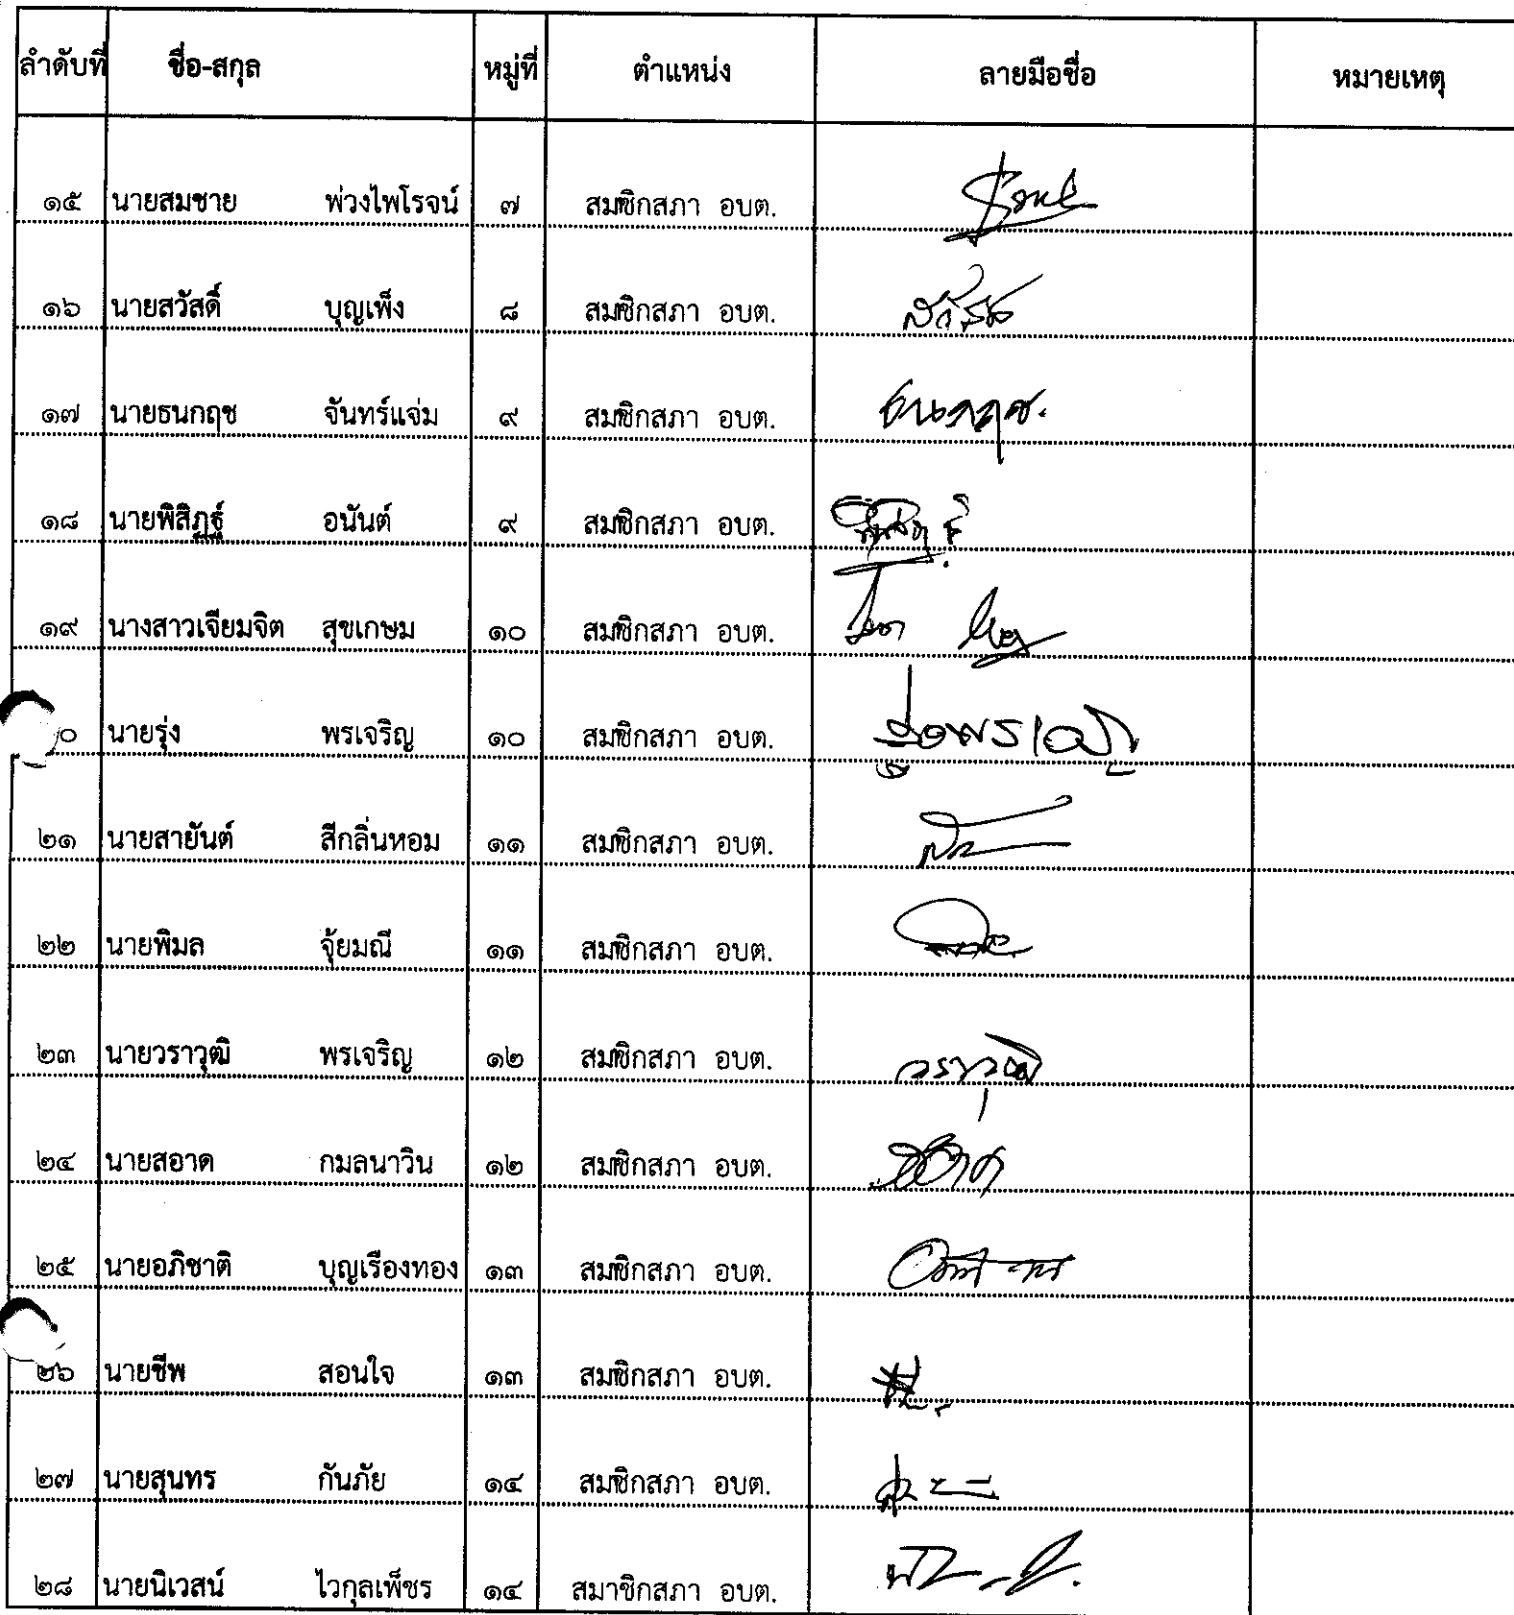 ลำดับที่ ชื่อ-สกุล หมู่ที่ ตำแหน่ง ลายมือชื่อ หมายเหตุ
๑๕ นายสมชาย พ่วงไพโรจน์ ๗ สมชิกสภา อบต.
๑๖ นายสวัสดิ์ บุญเพ็ง ๘ สมชิกสภา อบต.
๑๗ นายธนกฤช จันทร์แจ่ม ๙ สมชิกสภา อบต. ธนกฤช.
๑๘ นายพิสิฏฐ์ อนันต์ ๙ สมชิกสภา อบต.
๑๙ นางสาวเจียมจิต สุขเกษม ๑๐ สมชิกสภา อบต.
๐ นายรุ่ง พรเจริญ ๑๐ สมชิกสภา อบต.
๒๑ นายสายันต์ สีกลิ่นหอม ๑๑ สมชิกสภา อบต.
๒๒ นายพิมล จุ้ยมณี ๑๑ สมชิกสภา อบต.
๒๓ นายวราวุฒิ พรเจริญ ๑๒ สมชิกสภา อบต. วราวุฒิ
๒๔ นายสอาด กมลนาวิน ๑๒ สมชิกสภา อบต.
๒๕ นายอภิชาติ บุญเรืองทอง ๑๓ สมชิกสภา อบต.
๒๖ นายชีพ สอนใจ ๑๓ สมชิกสภา อบต.
๒๗ นายสุนทร กันภัย ๑๔ สมชิกสภา อบต.
๒๘ นายนิเวสน์ ไวกุลเพ็ชร ๑๔ สมาชิกสภา อบต.